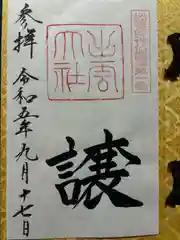 参拝 令和五年九月十七日
出雲
大社
譲